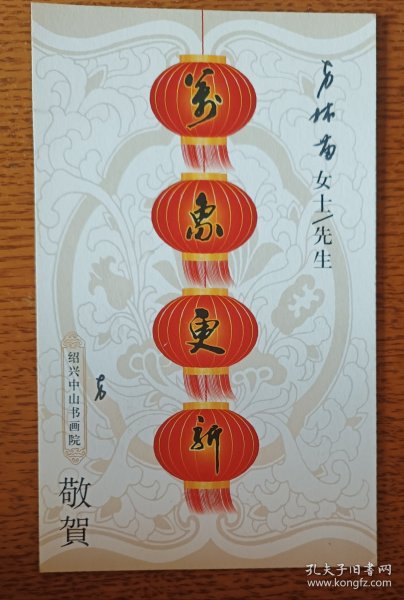 女士/先生
萬象更新
绍兴中山书画院
敬賀
孔夫子旧书网
www.kongfz.com